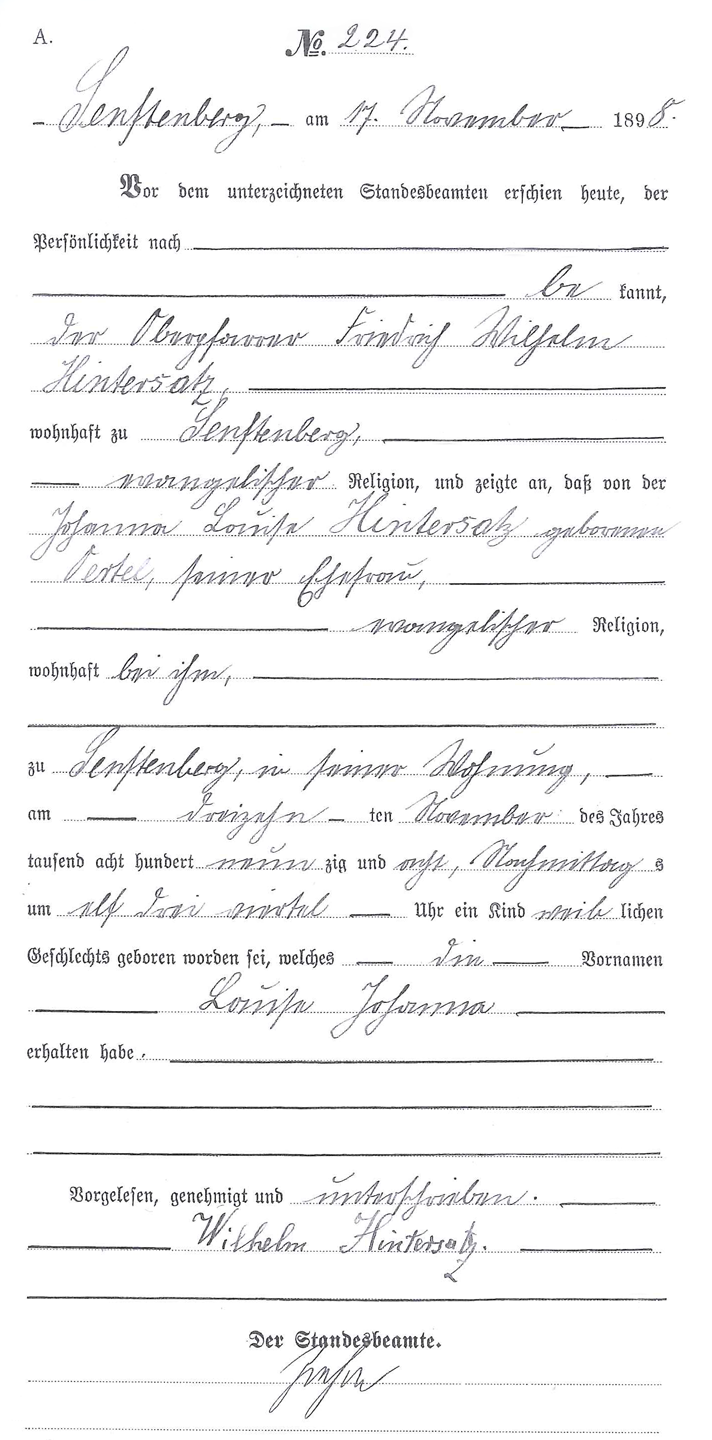 A.
No. 224.
Senftenberg, am 17. November 1898.
Vor dem unterzeichneten Standesbeamten erschien heute, der
Persönlichkeit nach
be kannt,
der Oberpfarrer Friedrich Wilhelm
Hintersatz,
wohnhaft zu Senftenberg,
evangelischer Religion, und zeigte an, daß von der
Johanna Louise Hintersatz geborenen
Oertel, seiner Ehefrau,
evangelischer Religion,
wohnhaft bei ihm,
zu Senftenberg, in seiner Wohnung,
am dreizehn ten November des Jahres
tausend acht hundert neun zig und acht, Nachmittag s
um elf drei viertel Uhr ein Kind weib lichen
Geschlechts geboren worden sei, welches die Vornamen
Louise Johanna
erhalten habe.
Vorgelesen, genehmigt und unterschrieben.
Wilhelm Hintersatz.
Der Standesbeamte.